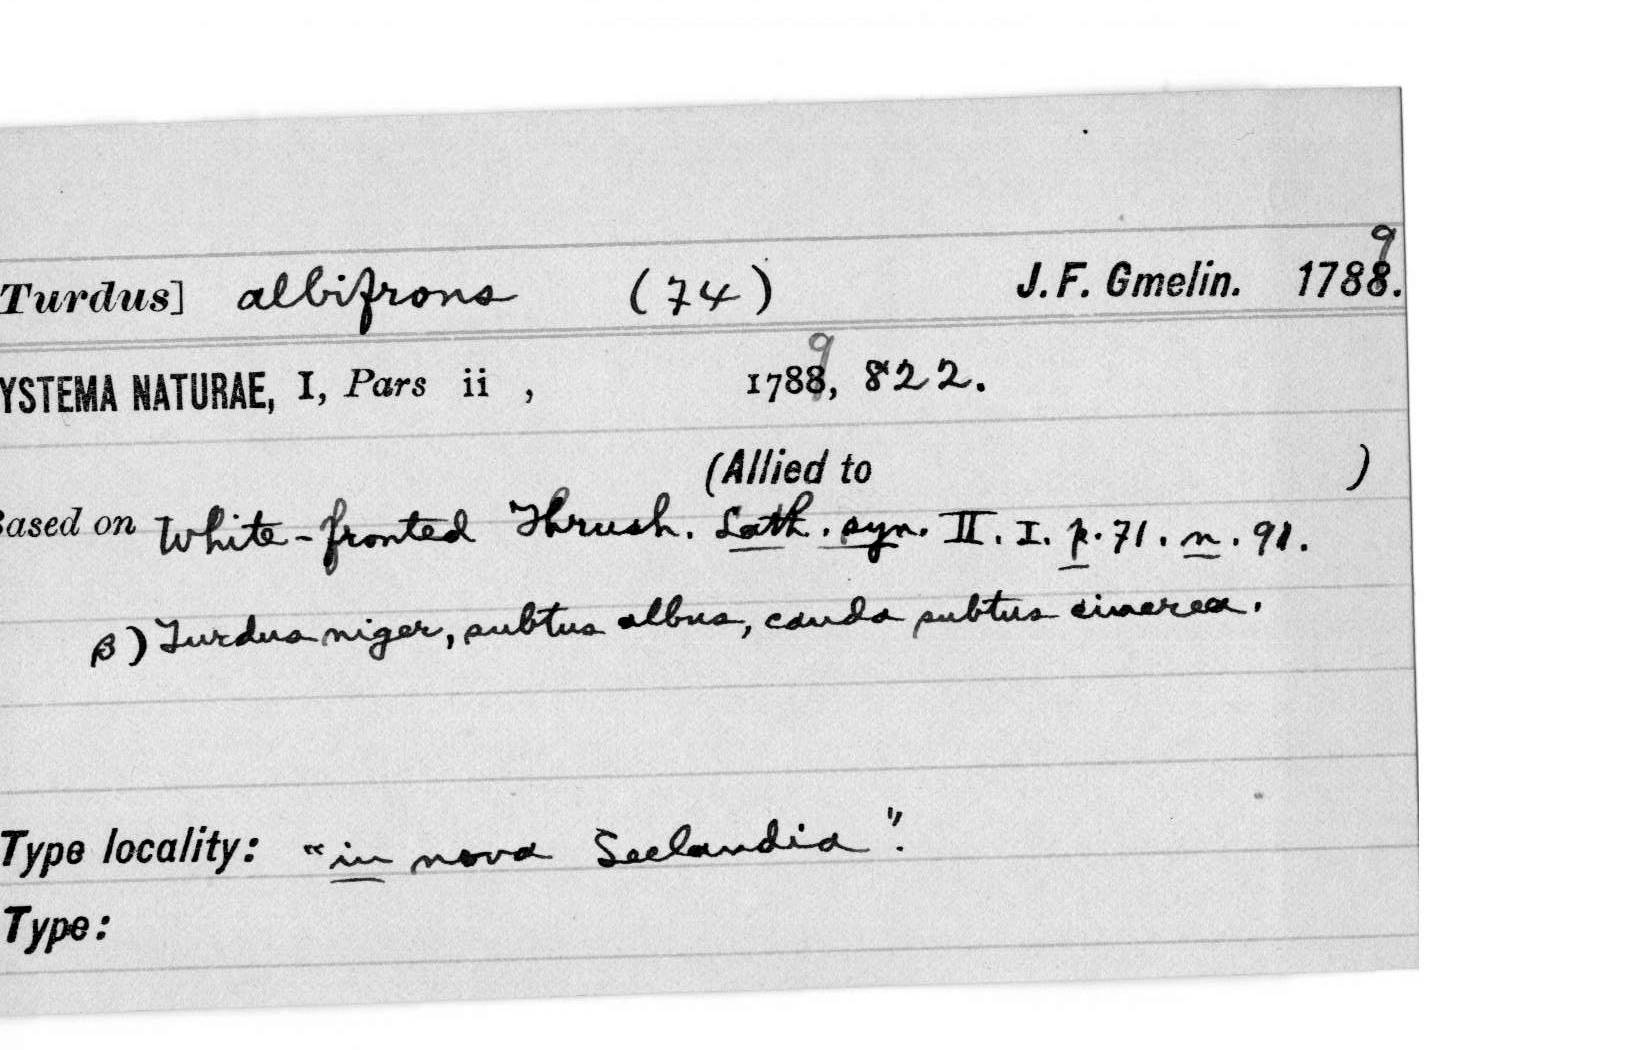 Turdus] albifrons (74) J. F. Gmelin. 1789.
YSTEMA NATURAE, I, Pars ii , 1789, 822.
(Allied to )
Based on White-fronted Thrush. Lath. syn. II. I. p. 71. n. 91.
β) Turdus niger, subtus albus, cauda subtus cinerea.
Type locality: "in nova Seelandia".
Type: